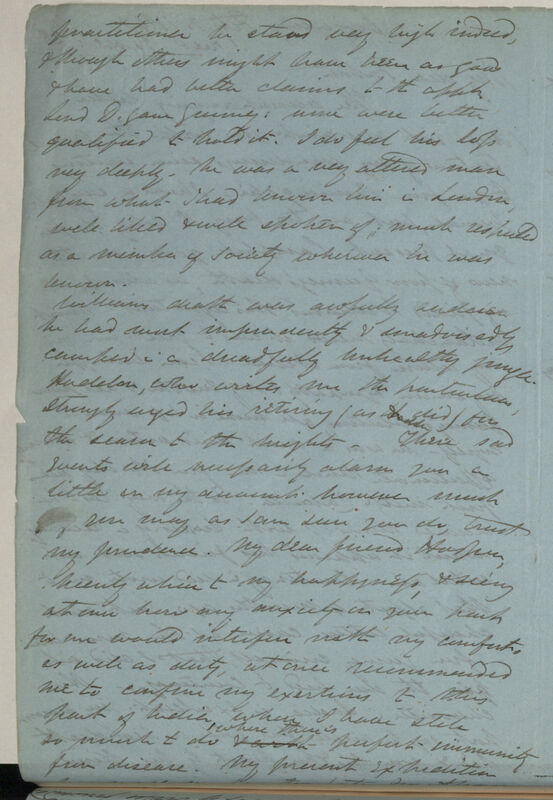 practitioner he stand very high indeed,
& though others might have been as good
& have had better claims to the appt
Lord D. gave Gurney: none were better
qualified to hold it. I do feel his loss
very deeply. he was a very altered man
from what I had known him in London
well liked & well spoken of, much respected
as a member of Society wherever he was
known.
Williams death was awfully sudden
he had most imprudently & unadvisedly
camped in a dreadfully unhealthy jungle.
who writes me the particulars,
strongly urged his retiring (as did) for
the season to the heights — These sad
events will necessarily alarm you a
little on my account: however much
you may as I am sure you do, trust
my prudence. My dear friend Hodgson,
keenly alive to my happyness, & seeing
at once how any anxiety on your part
for me would interfere with my comforts
as well as duty, at once recommended
me to confine my exertions to this
part of India, where I have still
so much to do & where there is perfect immunity
from disease. My present Expedition